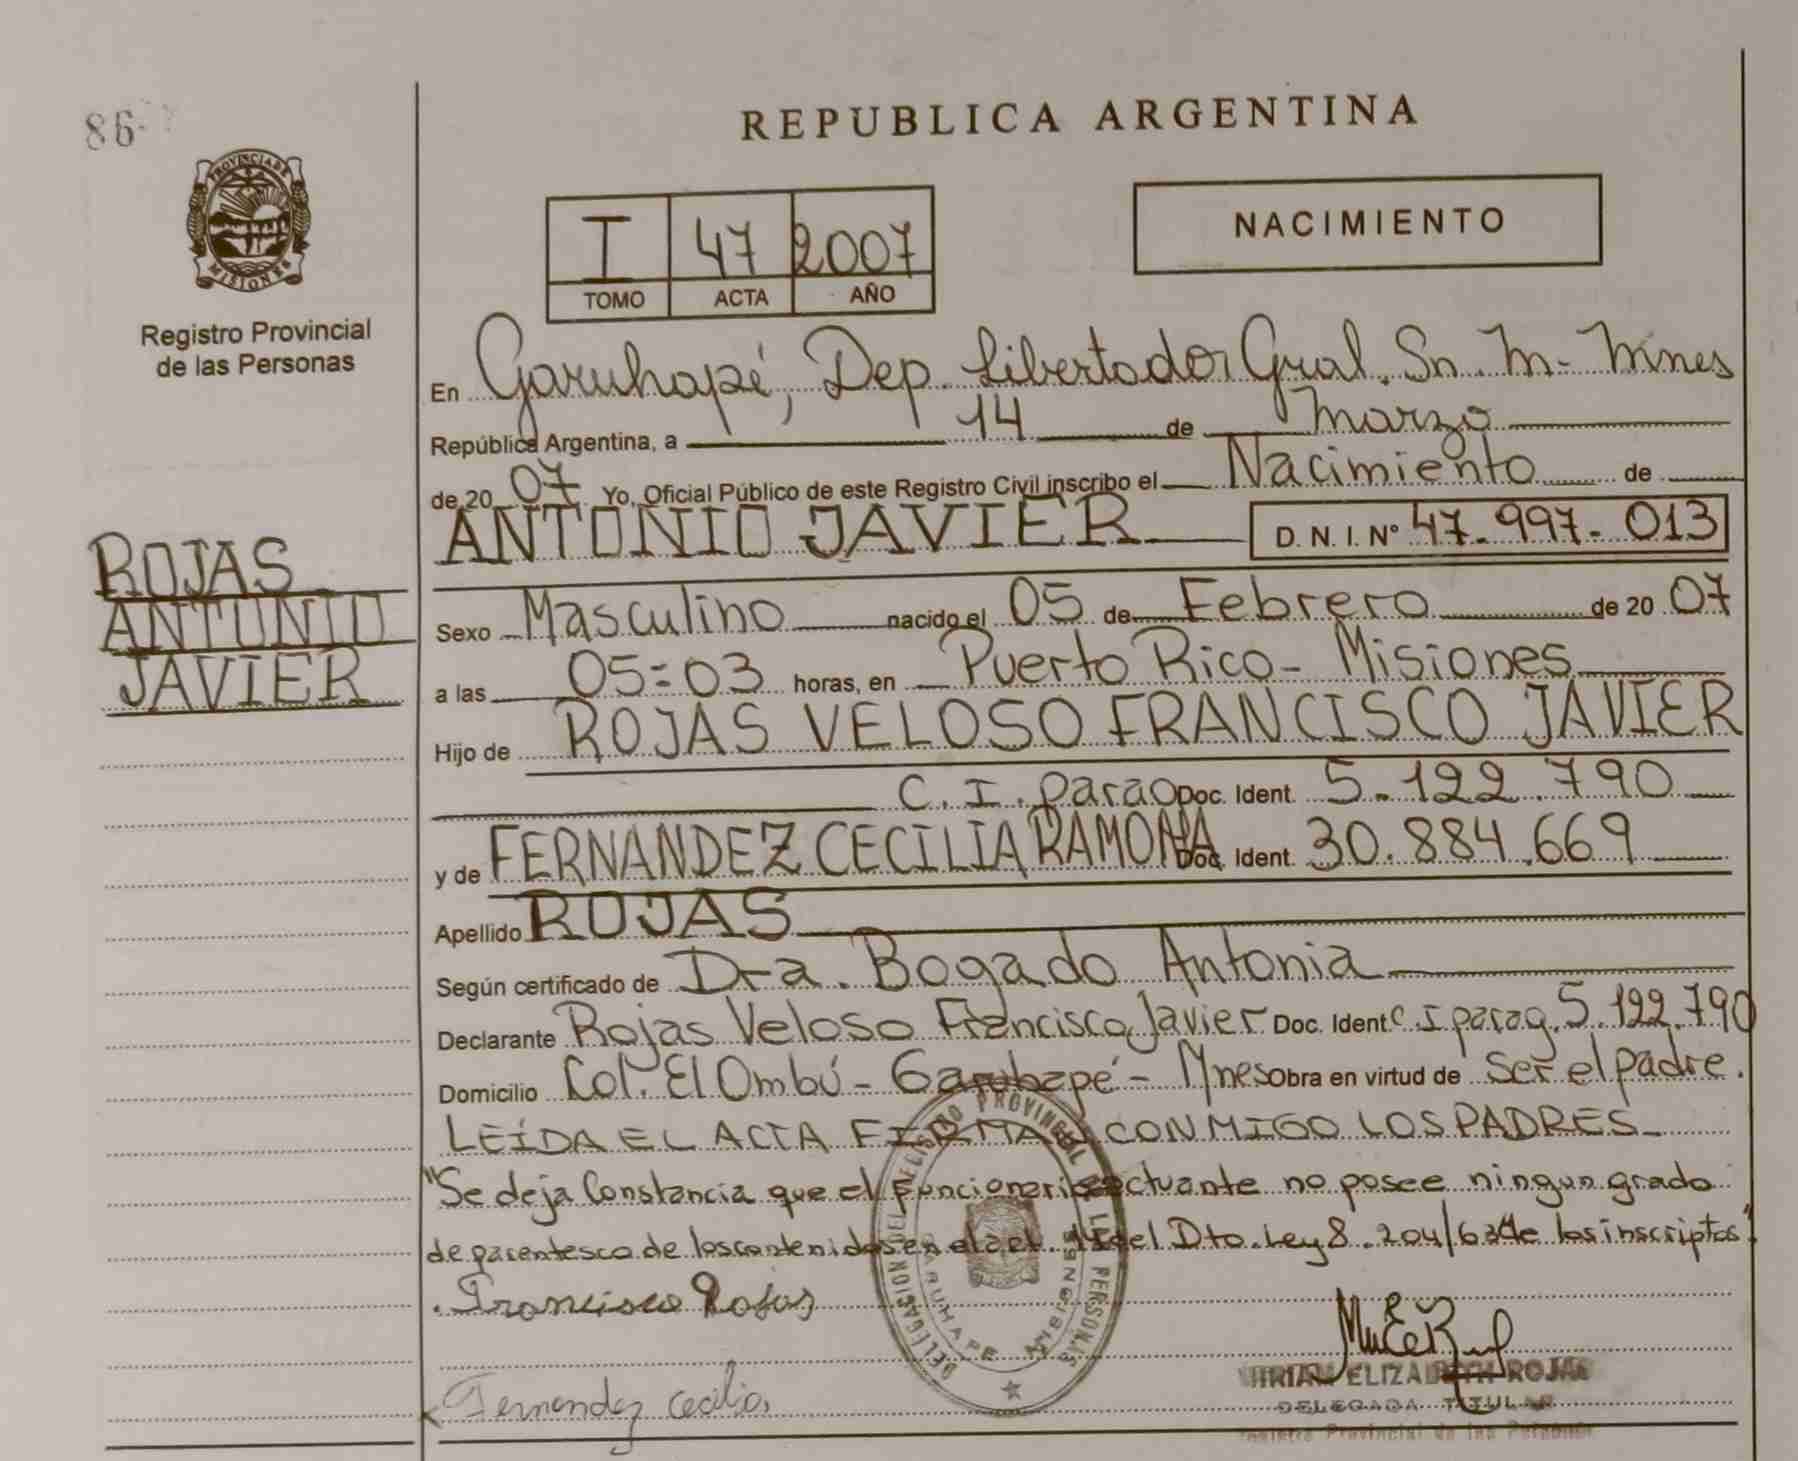 86-
PROVINCIA DE
MISIONES
Registro Provincial
de las Personas
ROJAS
ANTONIO
JAVIER
REPUBLICA ARGENTINA
I 47 2007
TOMO ACTA AÑO
NACIMIENTO
En Garuhapé, Dep. Libertador Gral. Sn. M- Mnes
República Argentina, a 14 de Marzo
de 20 07 Yo, Oficial Público de este Registro Civil inscribo el Nacimiento de
ANTONIO JAVIER D. N. I. Nº 47.997.013
Sexo Masculino nacido el 05 de Febrero de 20 07
a las 05:03 horas, en Puerto Rico - Misiones
Hijo de ROJAS VELOSO FRANCISCO JAVIER
C. I. parag Doc. Ident. 5.122.790
y de FERNANDEZ CECILIA RAMONA Doc. Ident. 30.884.669
Apellido ROJAS
Según certificado de Dra. Bogado Antonia
Declarante Rojas Veloso Francisco Javier Doc. Ident C I parag. 5.122.790
Domicilio Col. El Ombú - Garuhapé - Mnes Obra en virtud de ser el padre.
LEÍDA EL ACTA FIRMAN CONMIGO LOS PADRES
"Se deja Constancia que el funcionario actuante no posee ningun grado
de parentesco de los contenidos en el art. 14 del Dto. Ley 8.204/63 de los inscriptos".
Francisco Rojas
Fernandez Cecilia
DELEGACION DEL REGISTRO PROVINCIAL DE LAS PERSONAS
GARUHAPE MISIONES
MIRIAM ELIZABETH ROJAS
DELEGADA TITULAR
Registro Provincial de las Personas